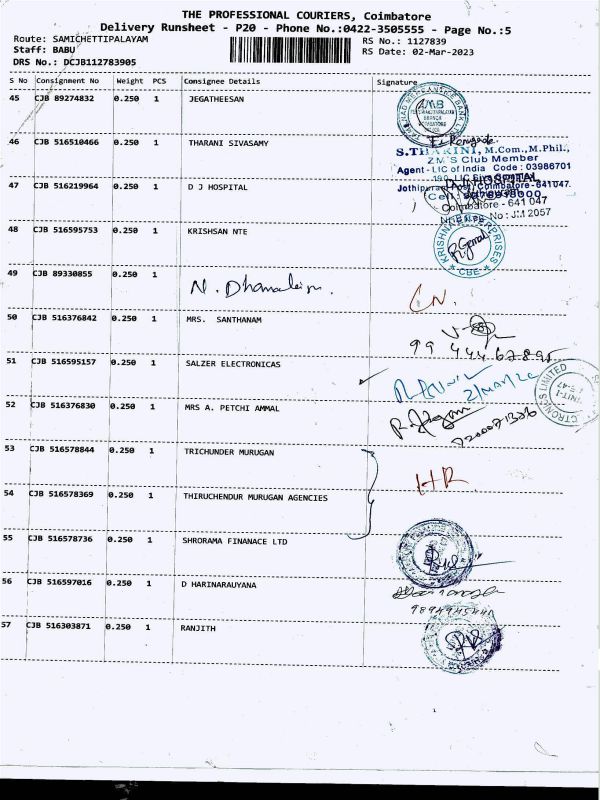 THE PROFESSIONAL COURIERS, Coimbatore
Delivery Runsheet - P20 - Phone No.:0422-3505555 - Page No.:5
Route: SAMICHETTIPALAYAM
RS No.: 1127839
Staff: BABU
RS Date: 02-Mar-2023
DRS No.: DCJB112783905
S No Consignment No Weight PCS Consignee Details Signature
45 CJB 89274832 0.250 1 JEGATHEESAN
46 CJB 516510466 0.250 1 THARANI SIVASAMY
S.THARINI, M.Com.,M.Phil.,
ZM'S Club Member
Agent - LIC of India Code : 03986701
47 CJB 516219964 0.250 1 D J HOSPITAL
Coimbatore - 641 047
No : JM 2057
48 CJB 516595753 0.250 1 KRISHSAN NTE
KRISHNA ENTERPRISES
CBE
49 CJB 89330855 0.250 1
50 CJB 516376842 0.250 1 MRS. SANTHANAM
51 CJB 516595157 0.250 1 SALZER ELECTRONICAS
52 CJB 516376830 0.250 1 MRS A. PETCHI AMMAL
53 CJB 516578844 0.250 1 TRICHUNDER MURUGAN
HR
54 CJB 516578369 0.250 1 THIRUCHENDUR MURUGAN AGENCIES
55 CJB 516578736 0.250 1 SHRORAMA FINANACE LTD
56 CJB 516597016 0.250 1 D HARINARAUYANA
57 CJB 516303871 0.250 1 RANJITH